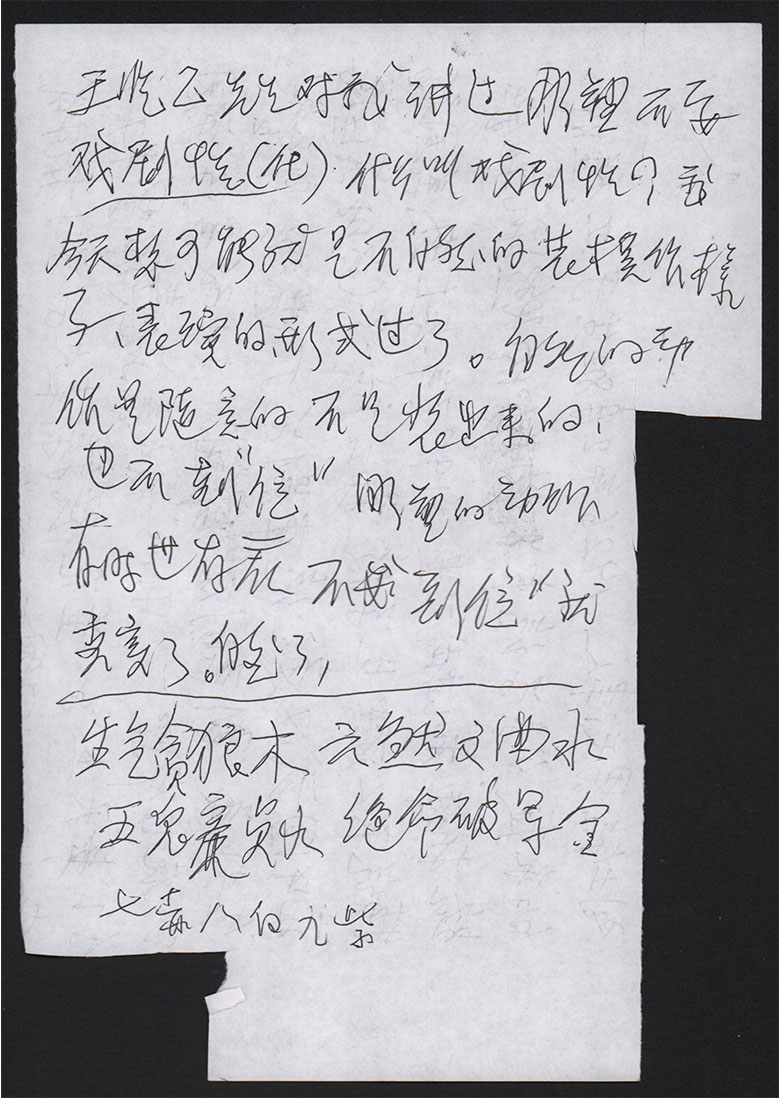 王临乙先生对我讲过雕塑不要
戏剧性(化)．什么叫戏剧性？我
今天想可能就是不自然的装模作样
子、表现的形式过了。自然的动
作是随意的不是装出来的、
也不“到位”雕塑的动作
有时也存在不要“到位”就
完美了。自然了，
生气贪狼木 六煞文曲水
五鬼廉贞火 绝命破军金
七赤八白九紫